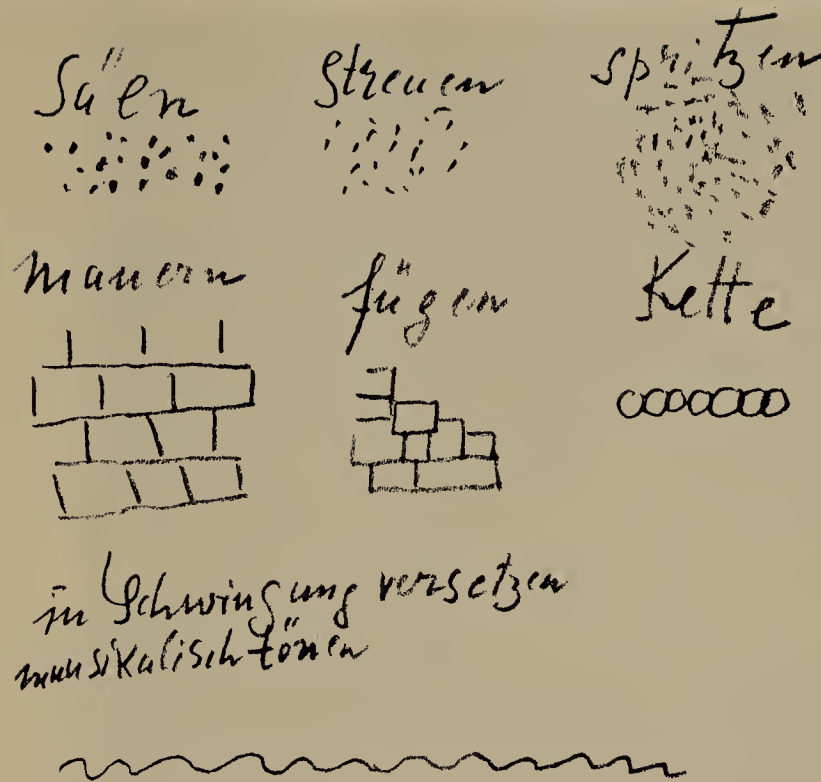 Säen
streuen
spritzen
mauern
fügen
Kette
in Schwingung versetzen
musikalisch tönen